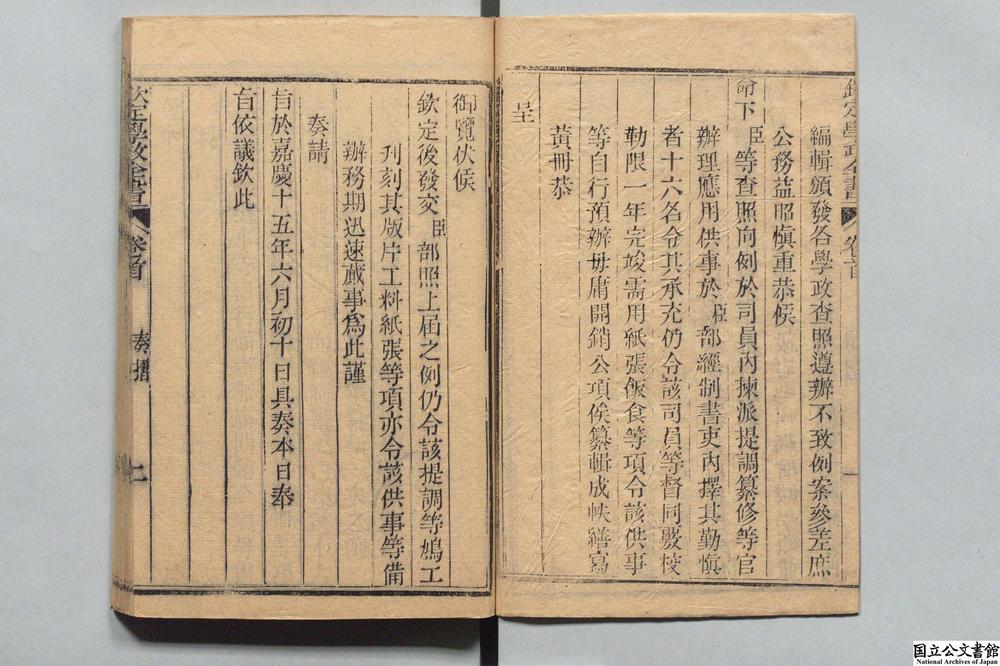 欽定學政全書 卷首 一
編輯頒發各學政查照遵辦不致例案參差庶
公務益昭慎重恭候
命下臣等查照向例於司員內揀派提調纂修等官
辦理應用供事於臣部經制書吏內擇其勤慎
者十六名令其承充仍令該司員等督同覈校
勒限一年完竣需用紙張飯食等項令該供事
等自行預辦毋庸開銷公項俟纂輯成帙繕寫
黃冊恭
呈
御覽伏候
欽定後發交臣部照上屆之例仍令該提調等鳩工
刊刻其版片工料紙張等項亦令該供事等備
辦務期迅速蕆事爲此謹
奏請
旨於嘉慶十五年六月初十日具奏本日奉
旨依議欽此
欽定學政全書 卷首 奏摺 二
国立公文書館
National Archives of Japan